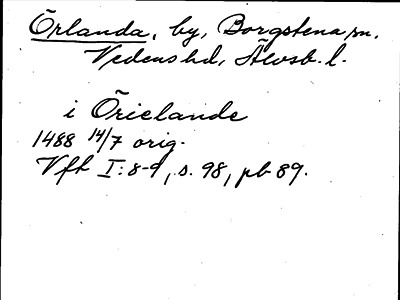 Örlanda, by, Borgstena sn.
Vedens hd, Älvsb. l.
i Örielande
1488 14/7 orig.
Vfh I: 8-9, s. 98, pb 89.